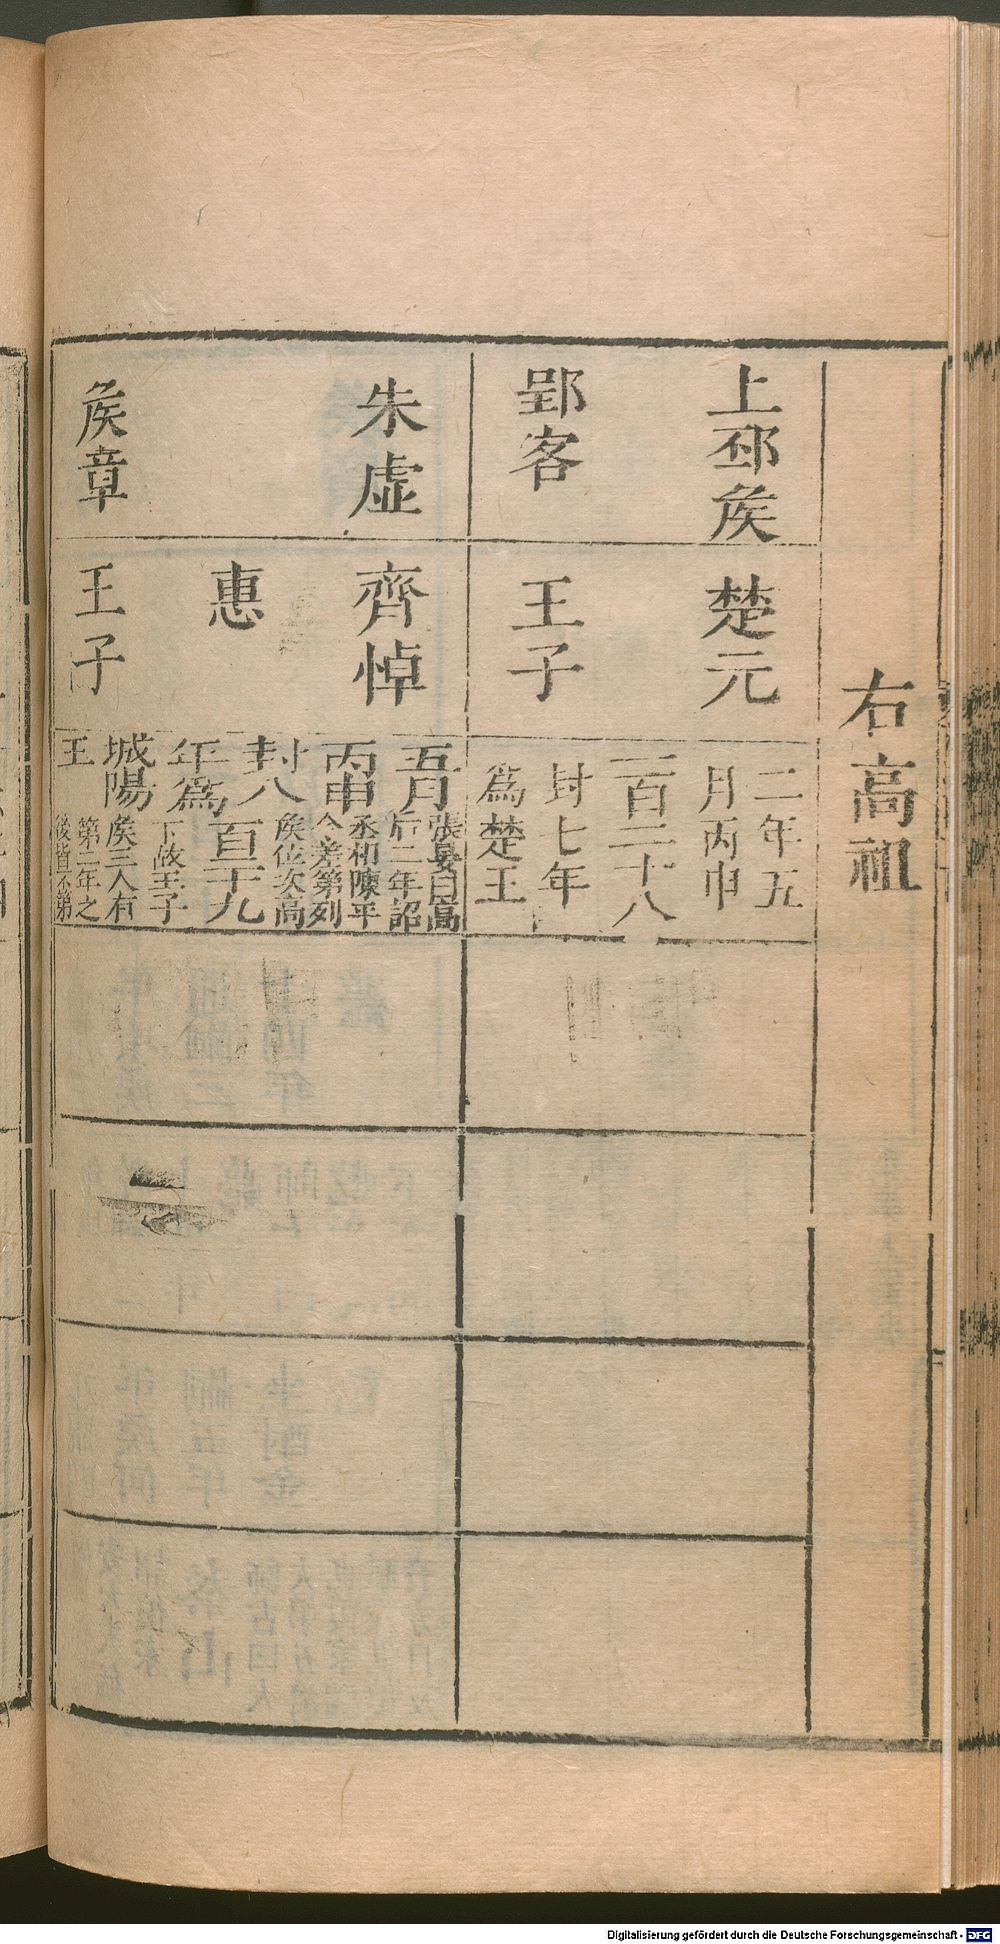 右高祖
上邳矦
郢客
楚元
王子
二年五
月丙申
一百二十八
封七年
爲楚王
朱虛
矦章
齊悼
惠
王子
五月
丙申
封八
年爲
城陽
王
張晏曰高
后二年詔
丞相陳平
令差第列
矦位次高
一百二十九
下故王子
矦三人有
第二年之
後皆不第
Digitalisierung gefördert durch die Deutsche Forschungsgemeinschaft - DFG